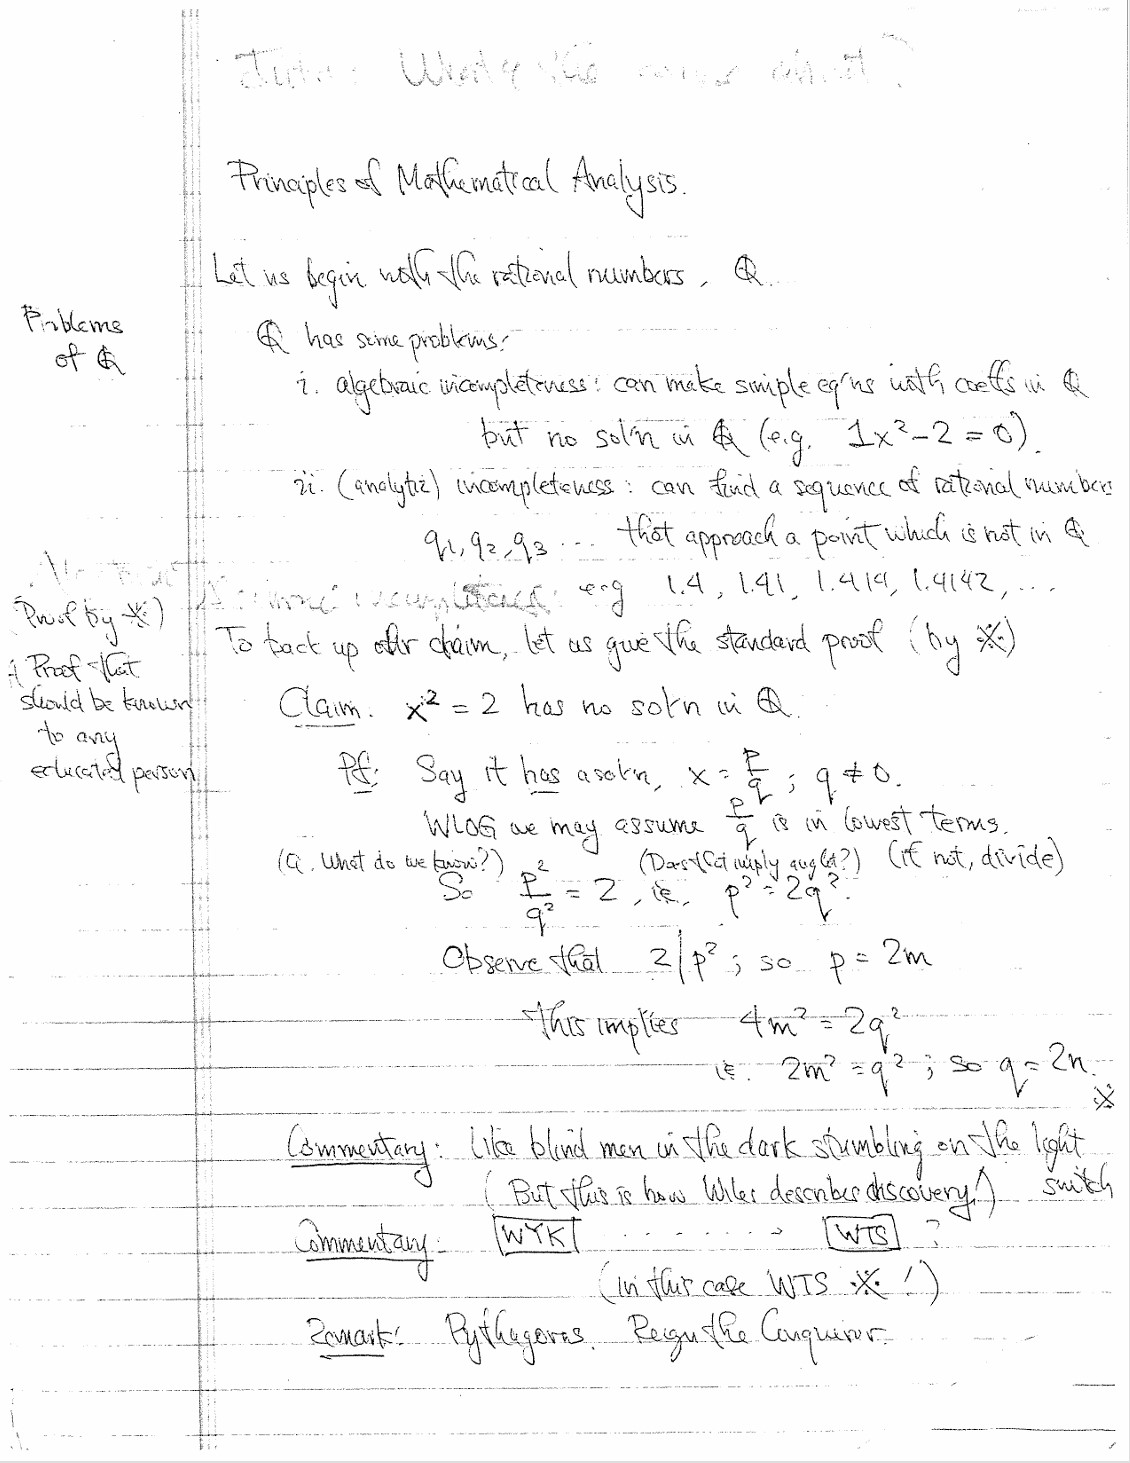 Principles of Mathematical Analysis.
Let us begin with the rational numbers, ℚ.
Problems
of ℚ
ℚ has some problems:
i. algebraic incompleteness: can make simple eq'ns with coeffs in ℚ
but no sol'n in ℚ (e.g. 1x²-2=0).
ii. (analytic) incompleteness: can find a sequence of rational numbers
q₁, q₂, q₃ ... that approach a point which is not in ℚ
e.g 1.4, 1.41, 1.414, 1.4142, ...
(Proof by ※)
To back up our claim, let us give the standard proof (by ※)
A Proof that
should be known
to any
educated person
Claim. x² = 2 has no sol'n in ℚ.
Pf: Say it has a sol'n, x = p/q ; q ≠ 0.
WLOG we may assume p/q is in lowest terms.
(Q. What do we know?) (Does that imply anything?) (if not, divide)
So p²/q² = 2, i.e., p² = 2q².
Observe that 2|p² ; so p = 2m
This implies 4m² = 2q²
i.e. 2m² = q² ; so q = 2n.
※
Commentary: Like blind men in the dark stumbling on the light
switch
(But this is how Wiles describes discovery!)
Commentary: WYK ........> WTS ?
(in this case WTS ※!)
Remark: Pythagoras. the